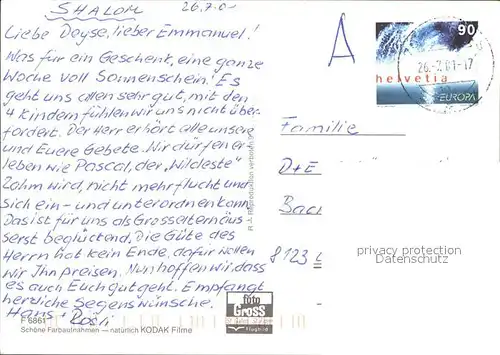 SHALOM 26.7.01
Liebe Dayse, lieber Emmanuel!
Was für ein Geschenk, eine ganze
Woche voll Sonnenschein. Es
geht uns allen sehr gut, mit den
4 Kindern fühlen wir uns nicht über-
fordert. Der Herr erhört alle unsere
und Euere Gebete. Wir dürfen er-
leben wie Pascal, der "Wildeste"
Zahm wird, nicht mehr flucht und
sich ein- und unterordnen kann.
Das ist für uns als Grosseltern äus-
serst beglückend. Die Güte des
Herrn hat kein Ende, dafür wollen
wir Ihn preisen. Nun hoffen wir, dass
es auch Euch gut geht. Empfangt
herzliche Segenswünsche.
Hans + Rösli
F 6861
Schöne Farbaufnahmen — natürlich KODAK Filme
foto
Gross
flugbild
Reproduktion verboten
A
90
26.-7.01-17
helvetia
EUROPA
Familie
D+E
Bac
8123
privacy protection
Datenschutz